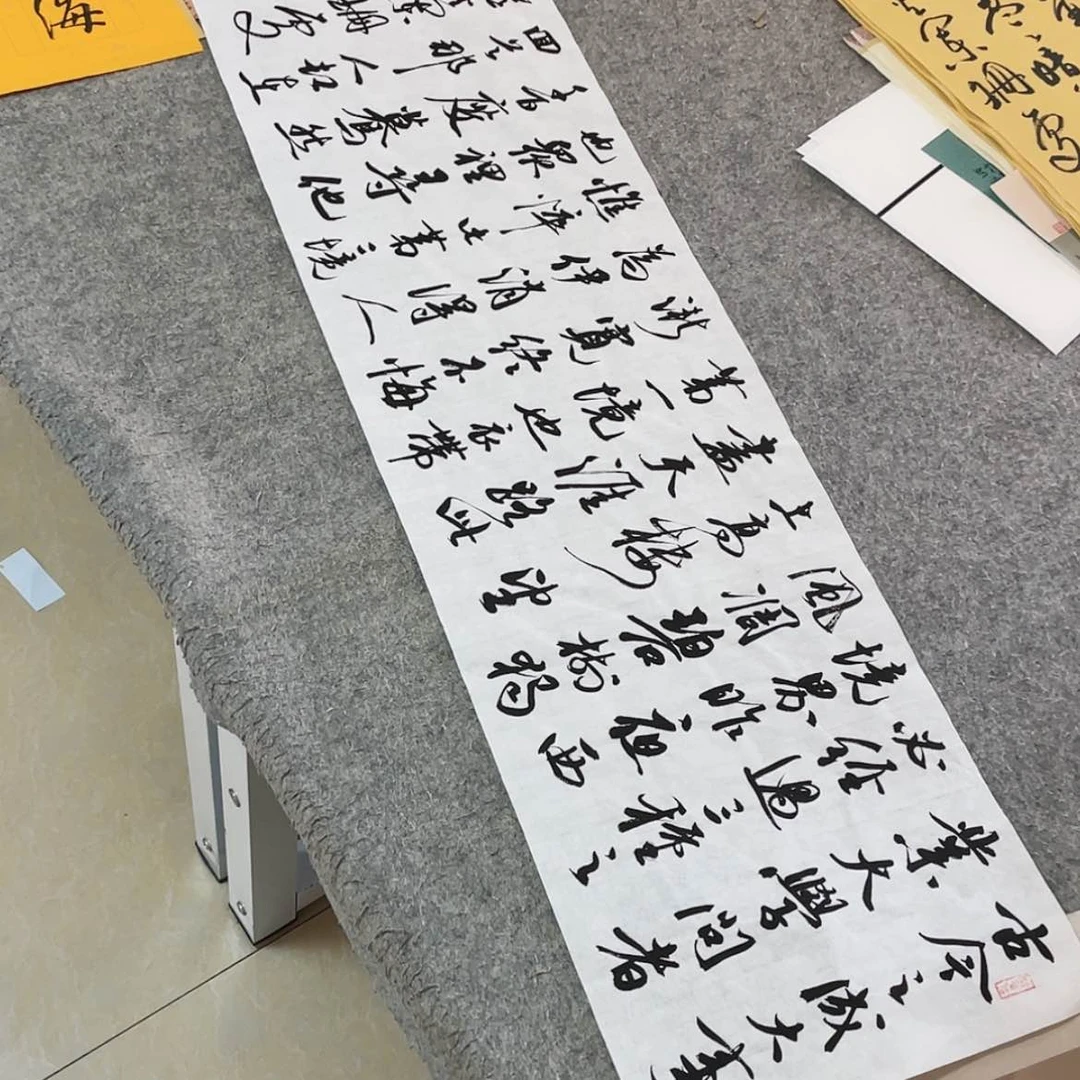 古今之成大事
業大學問者
必經過三種之
境界昨夜西
風凋碧樹獨
上高樓望
盡天涯路此
第一境也衣帶
漸寬終不悔
為伊消得人
憔悴此第二境
也眾裡尋他
千百度驀然
回首那人却在
闌珊處
海